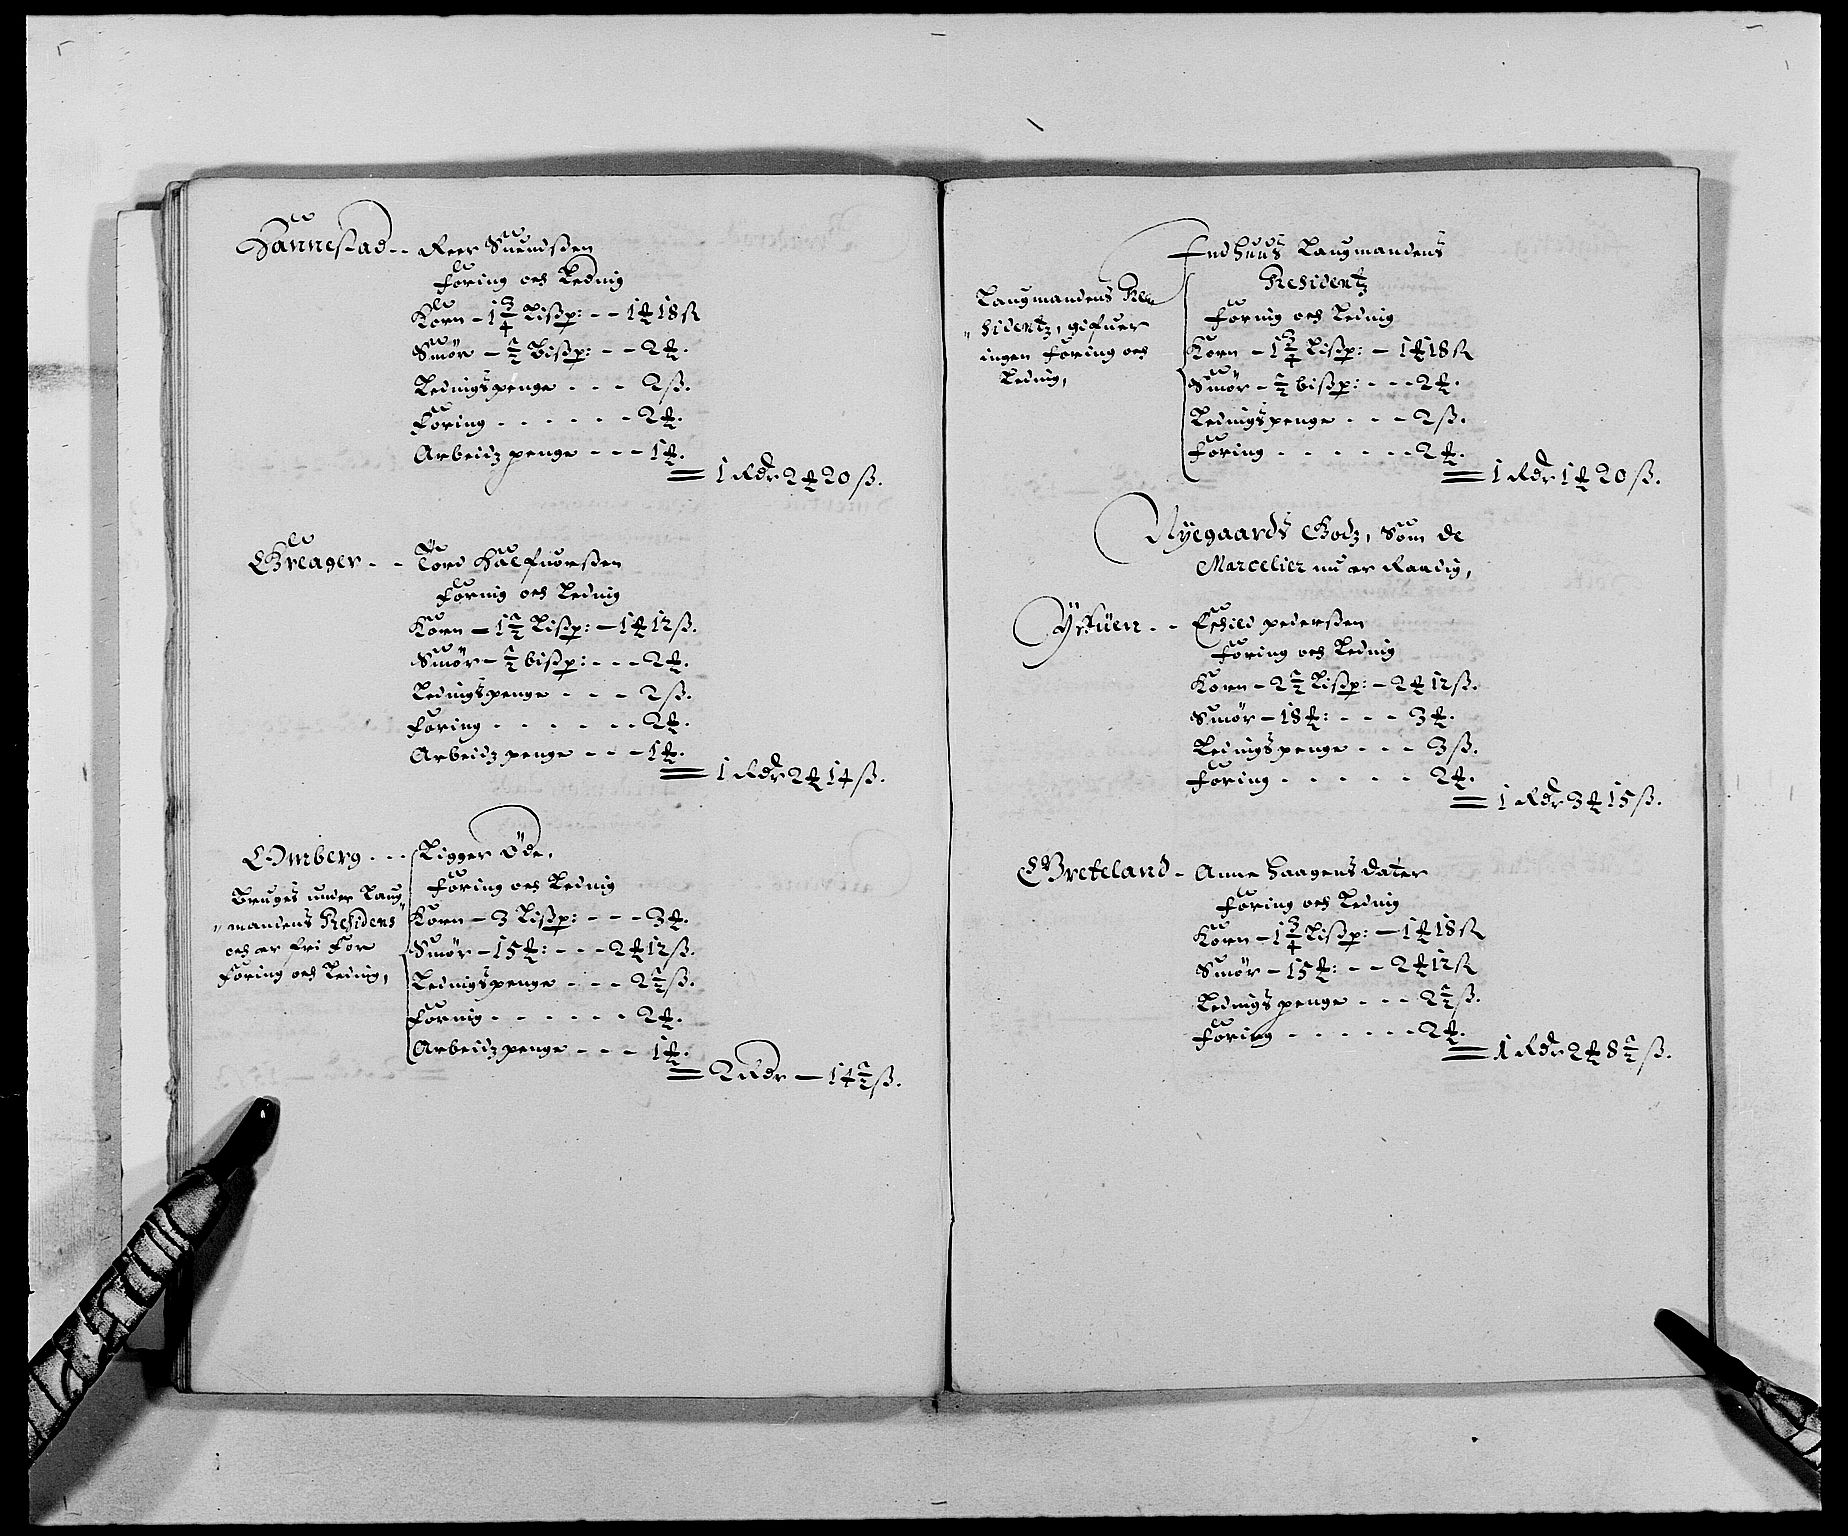 Hannestad -- Peer Suendsen
Foring och Lednig
Korn - 1 3/4 Lispp: -- 1 ℔ 18 ß
Smør - ½ Bispp: -- 2 ℔.
Lednigspenge - - - 2 ß.
Foring - - - - - - 2 ℔.
Arbeidzpenge - - - 1 ℔.
1 Rdr 2 ℔ 20 ß.
Greager - - Tord Halfuorsen
Fornig och Lednig
Korn - 1 ½ Lispp: - 1 ℔ 12 ß.
Smør - ½ bispp: - - - 2 ℔.
Lednigspenge - - - 2 ß.
Foring - - - - - - 2 ℔.
Arbeidzpenge - - - 1 ℔.
1 Rdr 2 ℔ 14 ß.
Omberg - - - Ligger Öde,
Bruges under Laug
mandens Residens
och er fri for
Foring och Lednig,
Foring och Lednig
Korn - 3 Lispp: - - - 3 ℔.
Smør - 15 ℔: - - - 2 ℔ 12 ß.
Lednigspenge - - - 2 ½ ß.
Fornig - - - - - - 2 ℔.
Arbeidzpenge - - - 1 ℔.
2 Rdr - 14 ½ ß.
Laugmandens Re
sidentz, gifuer
ingen Foring och
Lednig,
Huus Laugmandens
Residentz
Fornig och Lednig
Korn - 1 3/4 Lispp: - 1 ℔ 18 ß
Smør - ½ bispp: - - - 2 ℔.
Lednigspenge - - - 2 ß.
Foring - - - - - - 2 ℔.
1 Rdr 1 ℔ 20 ß.
Nyegaards Godz, Som de
Marcelier nu er Raadig,
Eschild pedersen
Foring och Lednig
Korn - 2 ½ Lispp: - 2 ℔ 12 ß.
Smør - 18 ℔: - - - 3 ℔.
Lednigspenge - - - 3 ß.
Foring - - - - - 2 ℔.
1 Rdr 3 ℔ 15 ß.
Greteland - Anne Haagens dater
Foring och Lednig
Korn - 1 3/4 Lispp: - 1 ℔ 18 ß
Smør - 15 ℔: - - 2 ℔ 12 ß
Lednigspenge - - - 2 ½ ß.
Foring - - - - - - 2 ℔.
1 Rdr 2 ℔ 8 ½ ß.